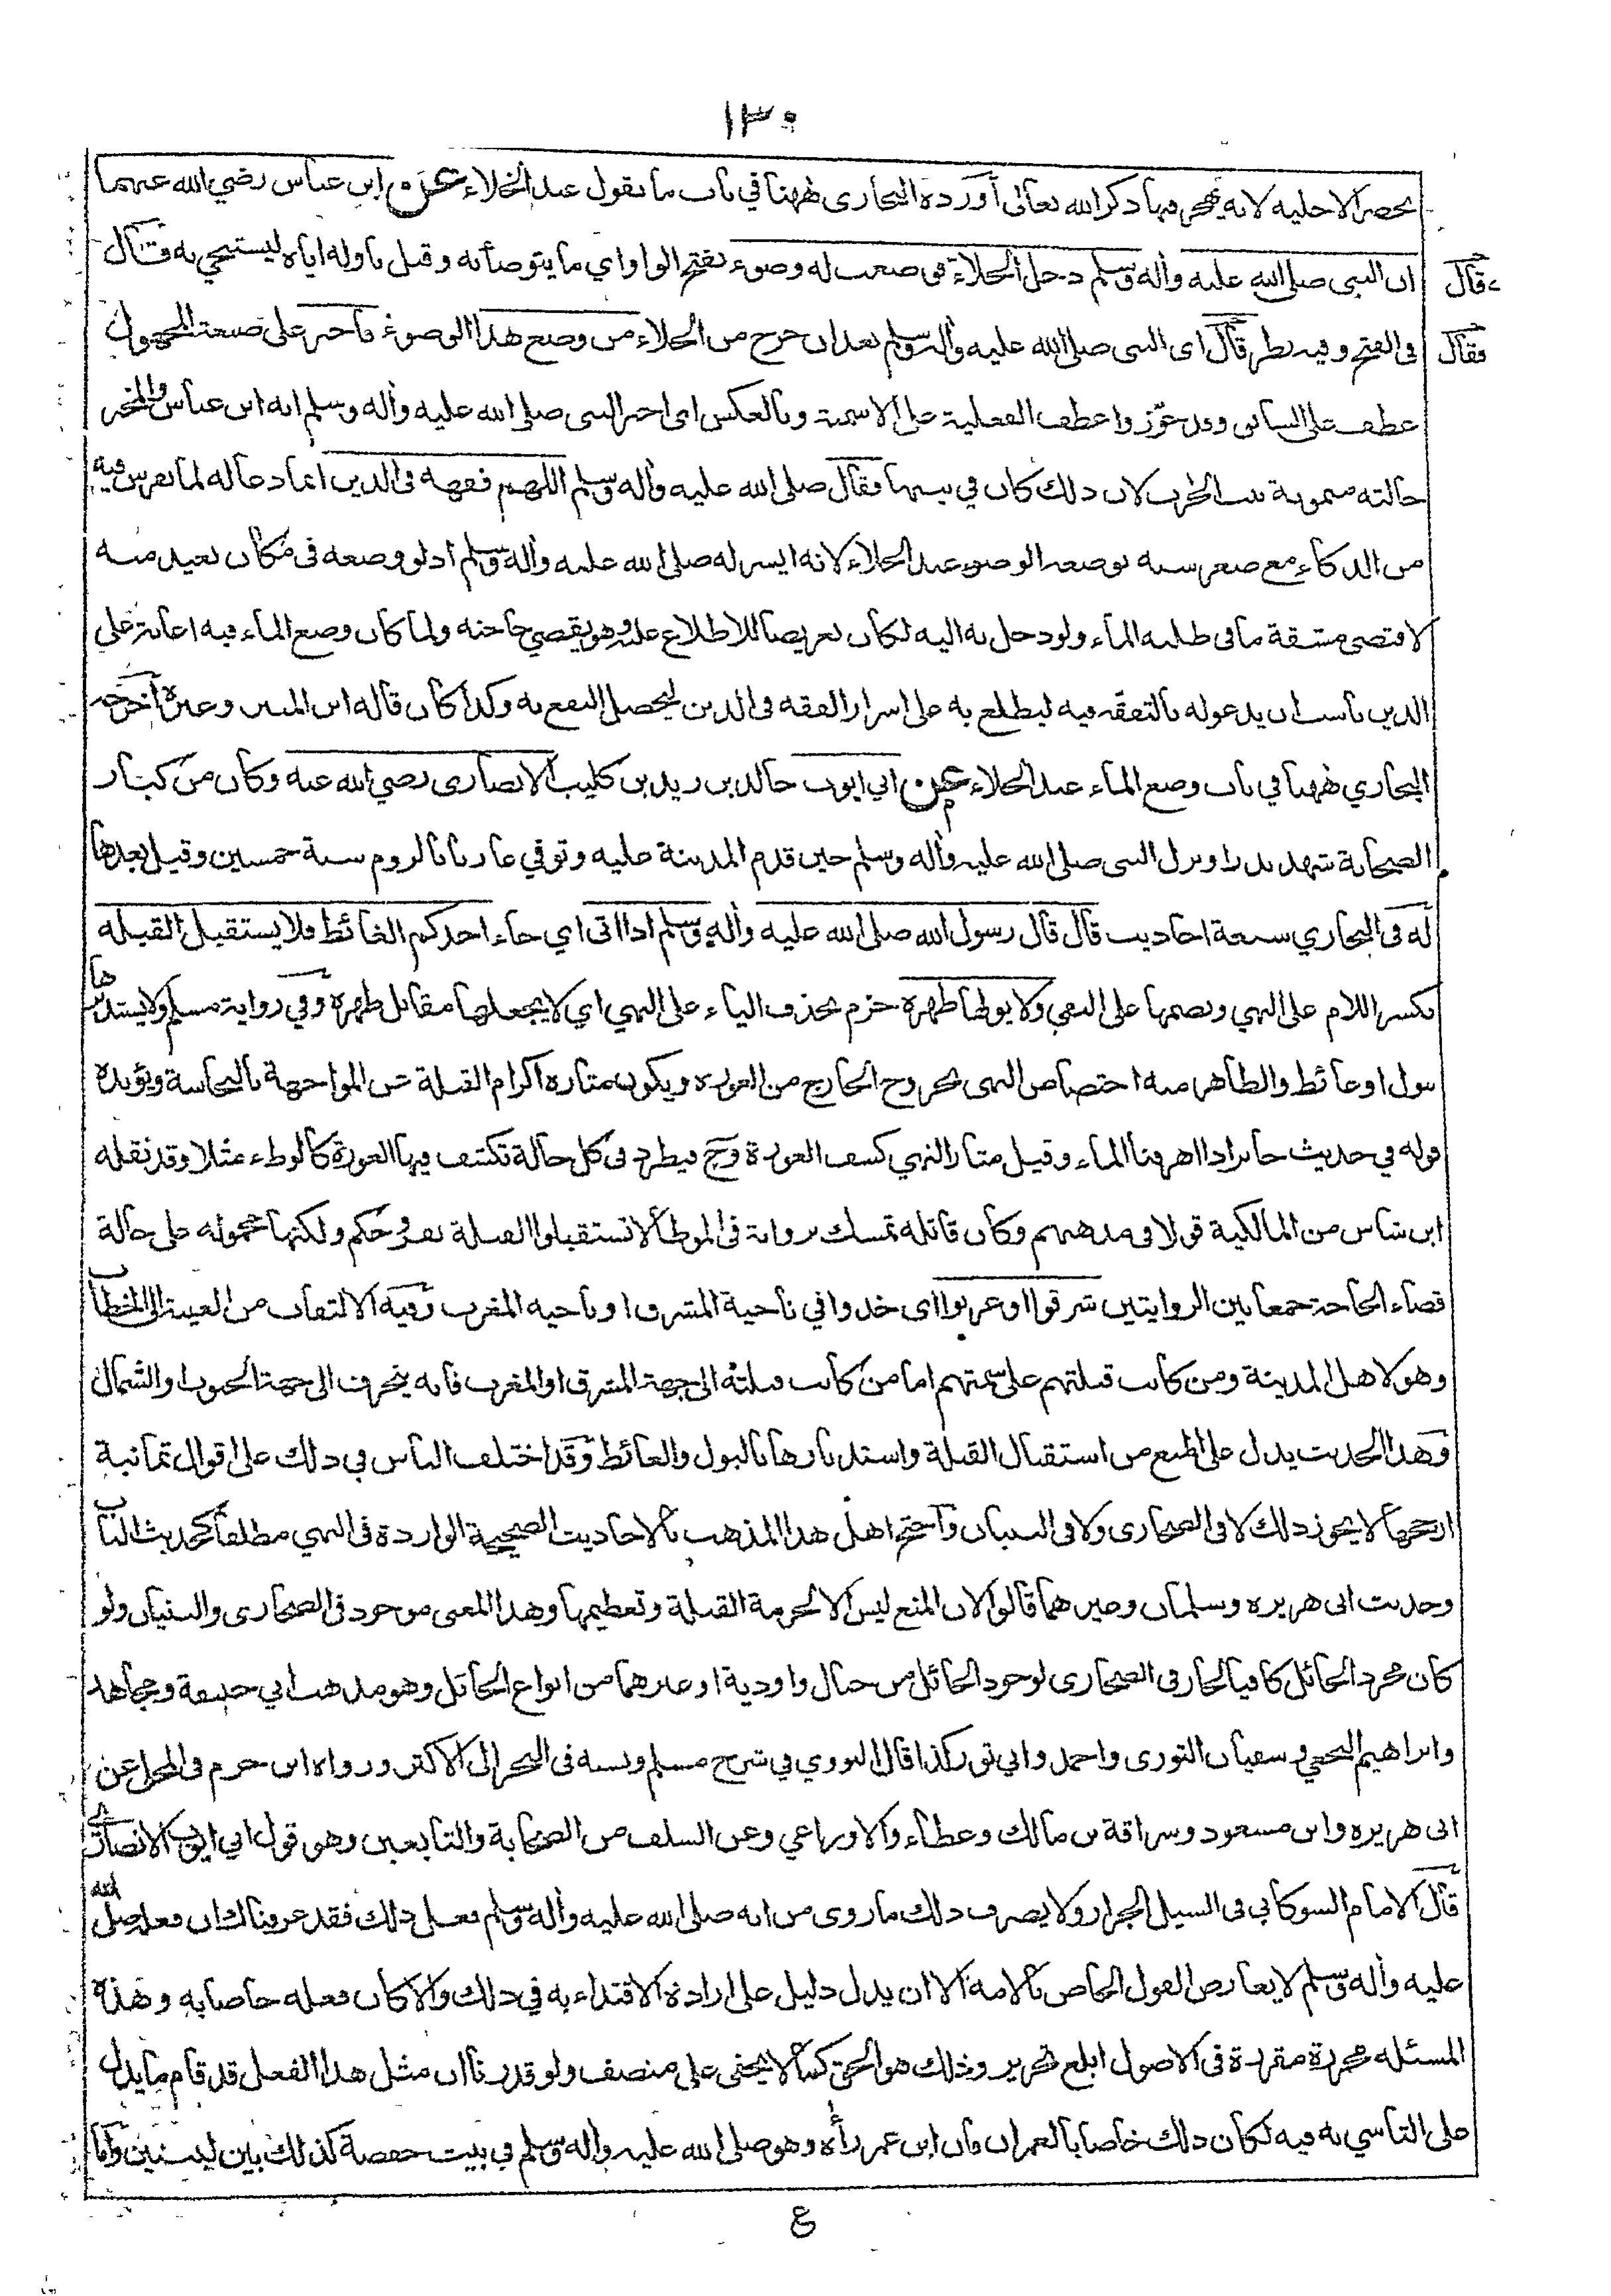 ١٣٠
يحضر الاخليه لانه يهجر فيها ذكر الله تعالى أورده البخارى ههنا في باب ما يقول عند الخلاء عن ابن عباس رضي الله عنهما
قال ان النبى صلى الله عليه وأله وسلم دخل الخلاء فوضعت له وضوء بفتح الواو اي ما يتوضأ به وقيل ناوله اياه ليستنجي به قال
فقال فى الفتح وفيه نظر قال اى النبى صلى الله عليه وأله وسلم بعد ان خرج من الخلاء من وضع هذا الوضوء فأخبر على صيغة المجهول
عطف على السابق وقد جوّزوا عطف الفعلية على الاسمية وبالعكس اى اخبر النبى صلى الله عليه وأله وسلم انه ابن عباس والمخبر
خالته ميمونة بنت الحرث لان ذلك كان في بيتها فقال صلى الله عليه وأله وسلم اللهم فقهه فى الدين انما دعا له لما تفرس فيه
من الذكاء مع صغر سنه بوضعه الوضوء عند الخلاء لانه ايسر له صلى الله عليه وأله وسلم اذ لو وضعه فى مكان بعيد منه
لاقتضى مشقة ما فى طلبه الماء ولو دخل به اليه لكان تعريضا للاطلاع عليه وهو يقضي حاجته ولما كان وضع الماء فيه اعانة على
الدين ناسب ان يدعو له بالتفقه فيه ليطلع به على اسرار الفقه فى الدين ليحصل النفع به وكذا كان قاله ابن المنير وغيره أخرجه
البخاري ههنا في باب وضع الماء عند الخلاء عن ابي ايوب خالد بن زيد بن كليب الانصارى رضي الله عنه وكان من كبار
الصحابة شهد بدرا ونزل النبى صلى الله عليه وأله وسلم حين قدم المدينة عليه وتوفي غازيا بالروم سنة خمسين وقيل بعدها
له فى البخاري سبعة احاديث قال قال رسول الله صلى الله عليه وأله وسلم اذا اتى اي جاء احدكم الغائط فلا يستقبل القبله
بكسر اللام على النهي وبضمها على النفي ولا يولها ظهره جزم بحذف الياء على النهي اي لا يجعلها مقابل ظهره وفي رواية مسلم ولا يستدبرها
ببول او غائط والظاهر منه اختصاص النهى بخروج الخارج من العوره ويكون مثاره اكرام القبلة عن المواجهة بالنجاسة ويؤيده
قوله في حديث جابر اذا اهرقنا الماء وقيل مثار النهي كشف العورة وح فيطرد فى كل حالة تكشف فيها العورة كالوطء مثلا وقد نقله
ابن شاس من المالكية قولا فى مذهبهم وكأن قائله تمسك برواية فى الموطأ لا تستقبلوا القبلة بفروجكم ولكنها محموله على حالة
قضاء الحاجة جمعا بين الروايتين شرقوا او غربوا اى خذوا في ناحية المشرق او ناحيه المغرب وفيه الالتفات من الغيبة الى الخطاب
وهو لاهل المدينة ومن كانت قبلتهم على سمتهم اما من كانت قبلته الى جهة المشرق او المغرب فانه ينحرف الى جهة الجنوب او الشمال
وهذا الحديث يدل على المنع من استقبال القبلة واستدبارها بالبول والغائط وقد اختلف الناس في ذلك على اقوال ثمانية
ارجحها لا يجوز ذلك لا فى الصحارى ولا فى البنيان واحتج اهل هذا المذهب بالاحاديث الصحيحة الواردة فى النهي مطلقا كحديث الباب
وحديث ابى هريره وسلمان وغيرهما قالوا لان المنع ليس الا لحرمة القبلة وتعظيمها وهذا المعنى موجود فى الصحارى والبنيان ولو
كان مجرد الحائل كافيا لجاز فى الصحارى لوجود الحائل من جبال واودية او غيرهما من انواع الحائل وهو مذهب ابي حنيفة ومجاهد
وابراهيم النخعي وسفيان الثورى واحمد وابي ثور كذا قال النووي في شرح مسلم ونسبه فى البحر الى الاكثر ورواه ابن حزم فى المحلى عن
ابى هريره وابن مسعود وسراقة بن مالك وعطاء والاوزاعي وعن السلف من الصحابة والتابعين وهو قول ابي ايوب الانصارى
قال الامام الشوكاني فى السيل الجرار ولا يصرف ذلك ما روى من انه صلى الله عليه وأله وسلم فعل ذلك فقد عرفناك ان فعله صلى الله
عليه وأله وسلم لا يعارض القول الخاص بالامة الا ان يدل دليل على ارادة الاقتداء به في ذلك والا كان فعله خاصا به وهذه
المسئله محررة مقررة فى الاصول ابلغ تحرير وذلك هو الحق كما لا يخفى على منصف ولو قدرنا ان مثل هذا الفعل قد قام ما يدل
على التأسي به فيه لكان ذلك خاصا بالعمران فان ابن عمر رأه وهو صلى الله عليه وأله وسلم في بيت حفصة كذلك بين لبنتين وأما
ع